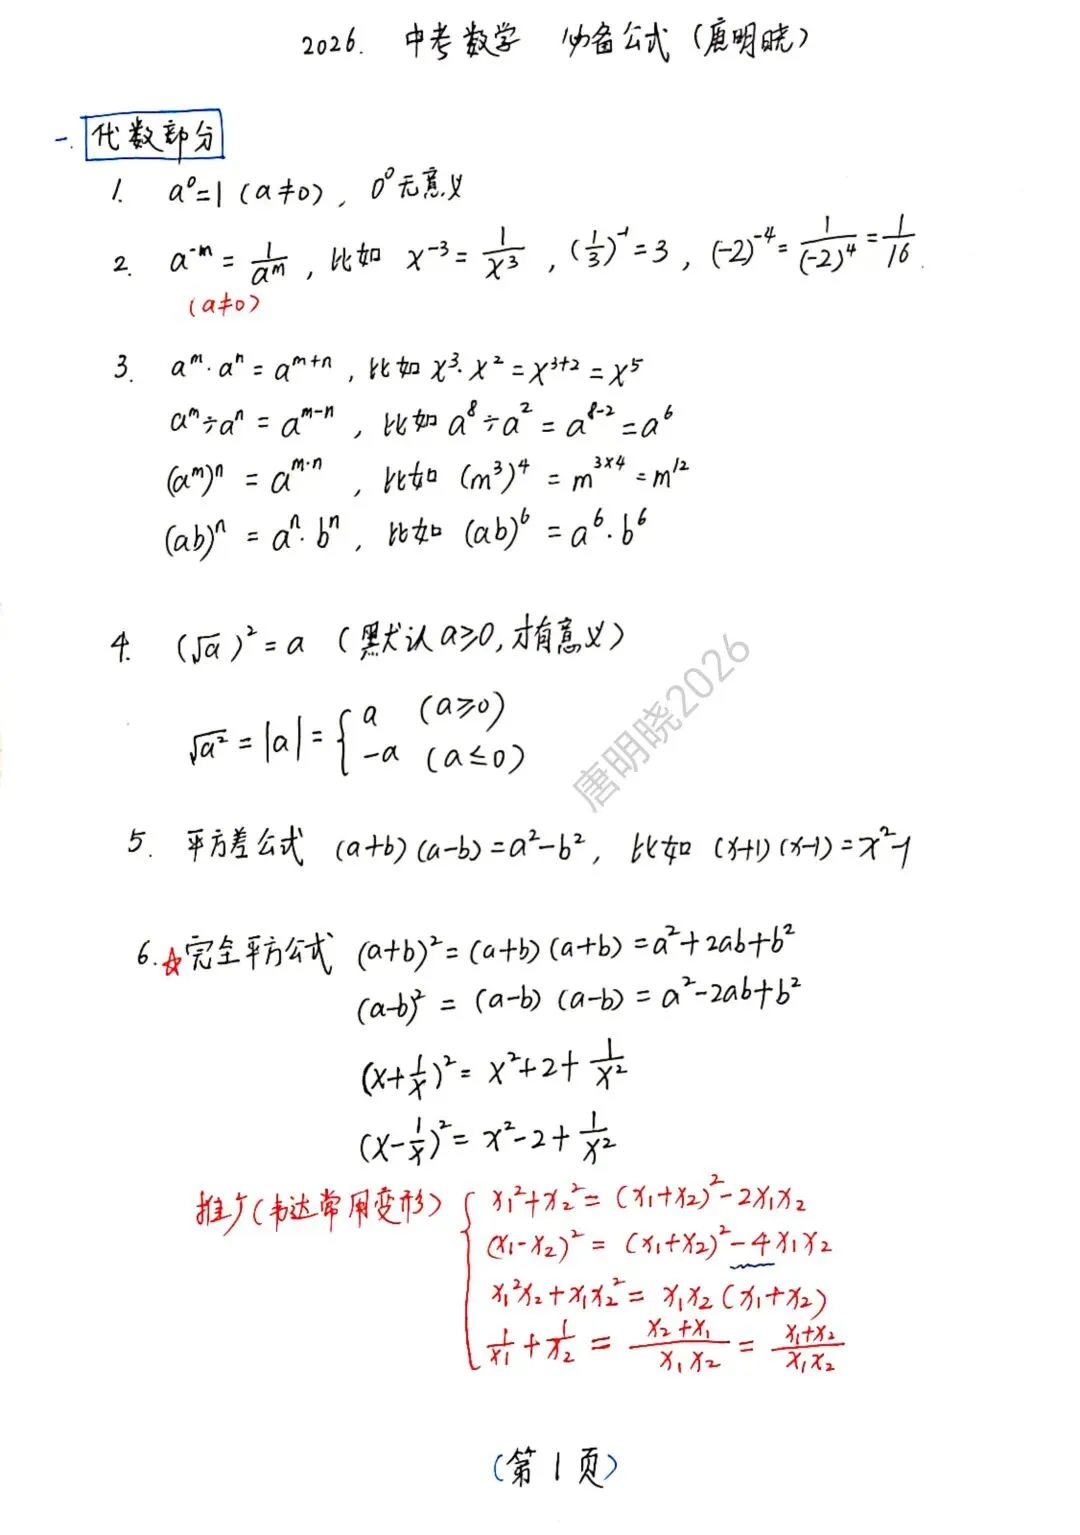 2026. 中考数学 必备公式(唐明晓)
一. 代数部分
1. a⁰=1 (a≠0), 0⁰无意义
2. a⁻ᵐ = 1/aᵐ, 比如 x⁻³ = 1/x³, (1/3)⁻¹=3, (-2)⁻⁴ = 1/(-2)⁴ = 1/16.
(a≠0)
3. aᵐ·aⁿ = aᵐ⁺ⁿ, 比如 x³·x² = x³⁺² = x⁵
aᵐ÷aⁿ = aᵐ⁻ⁿ, 比如 a⁸÷a² = a⁸⁻² = a⁶
(aᵐ)ⁿ = a^{m·n}, 比如 (m³)⁴ = m^{3×4} = m¹²
(ab)ⁿ = aⁿ·bⁿ, 比如 (ab)⁶ = a⁶·b⁶
4. (√a)² = a (默认a≥0,才有意义)
√a² = |a| = { a (a≥0)
-a (a≤0)
唐明晓2026
5. 平方差公式 (a+b)(a-b)=a²-b², 比如 (x+1)(x-1)=x²-1
6. ☆完全平方公式 (a+b)² = (a+b)(a+b) = a²+2ab+b²
(a-b)² = (a-b)(a-b) = a²-2ab+b²
(x+1/x)² = x²+2+1/x²
(x-1/x)² = x²-2+1/x²
推广(韦达常用变形) { x₁²+x₂² = (x₁+x₂)²-2x₁x₂
(x₁-x₂)² = (x₁+x₂)²-4x₁x₂
x₁²x₂+x₁x₂² = x₁x₂(x₁+x₂)
1/x₁ + 1/x₂ = (x₂+x₁)/(x₁x₂) = (x₁+x₂)/(x₁x₂)
(第1页)